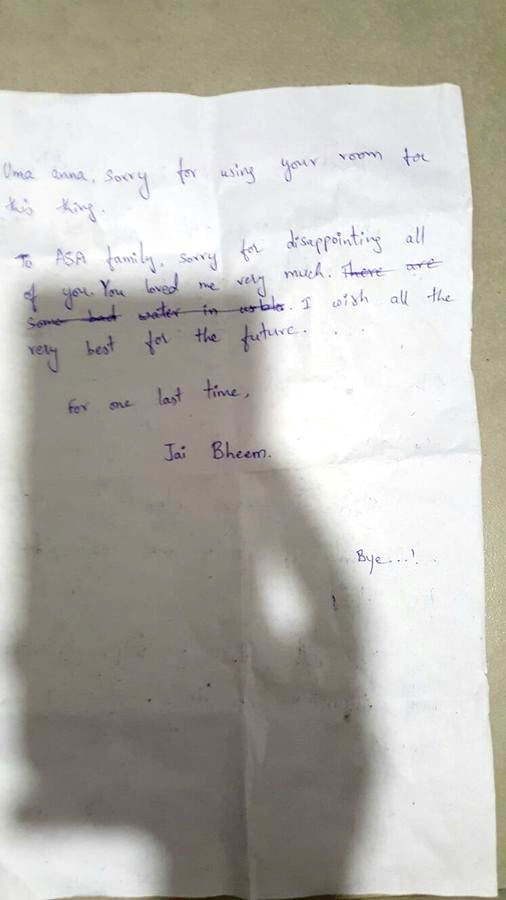 Uma anna, sorry for using your room for
this thing.
To ASA family, sorry for disappointing all
of you. You loved me very much. There are
some bad water in
. I wish all the
very best for the future. . .
For one last time,
Jai Bheem.
Bye...!